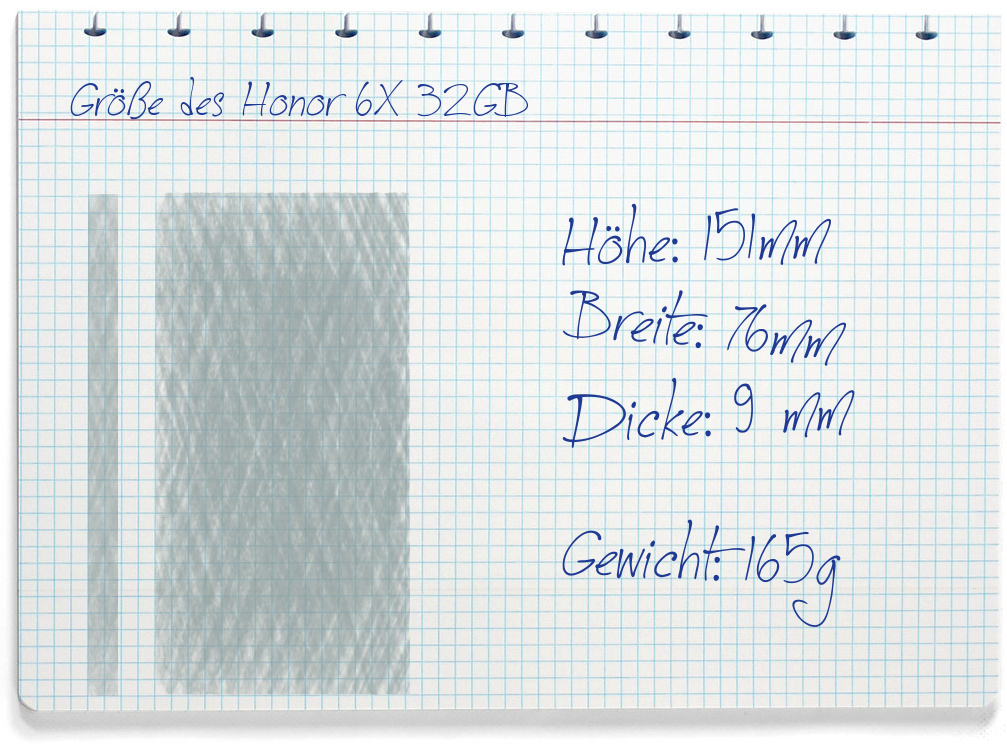 Größe des Honor 6X 32GB
Höhe: 151mm
Breite: 76mm
Dicke: 9 mm
Gewicht: 165g